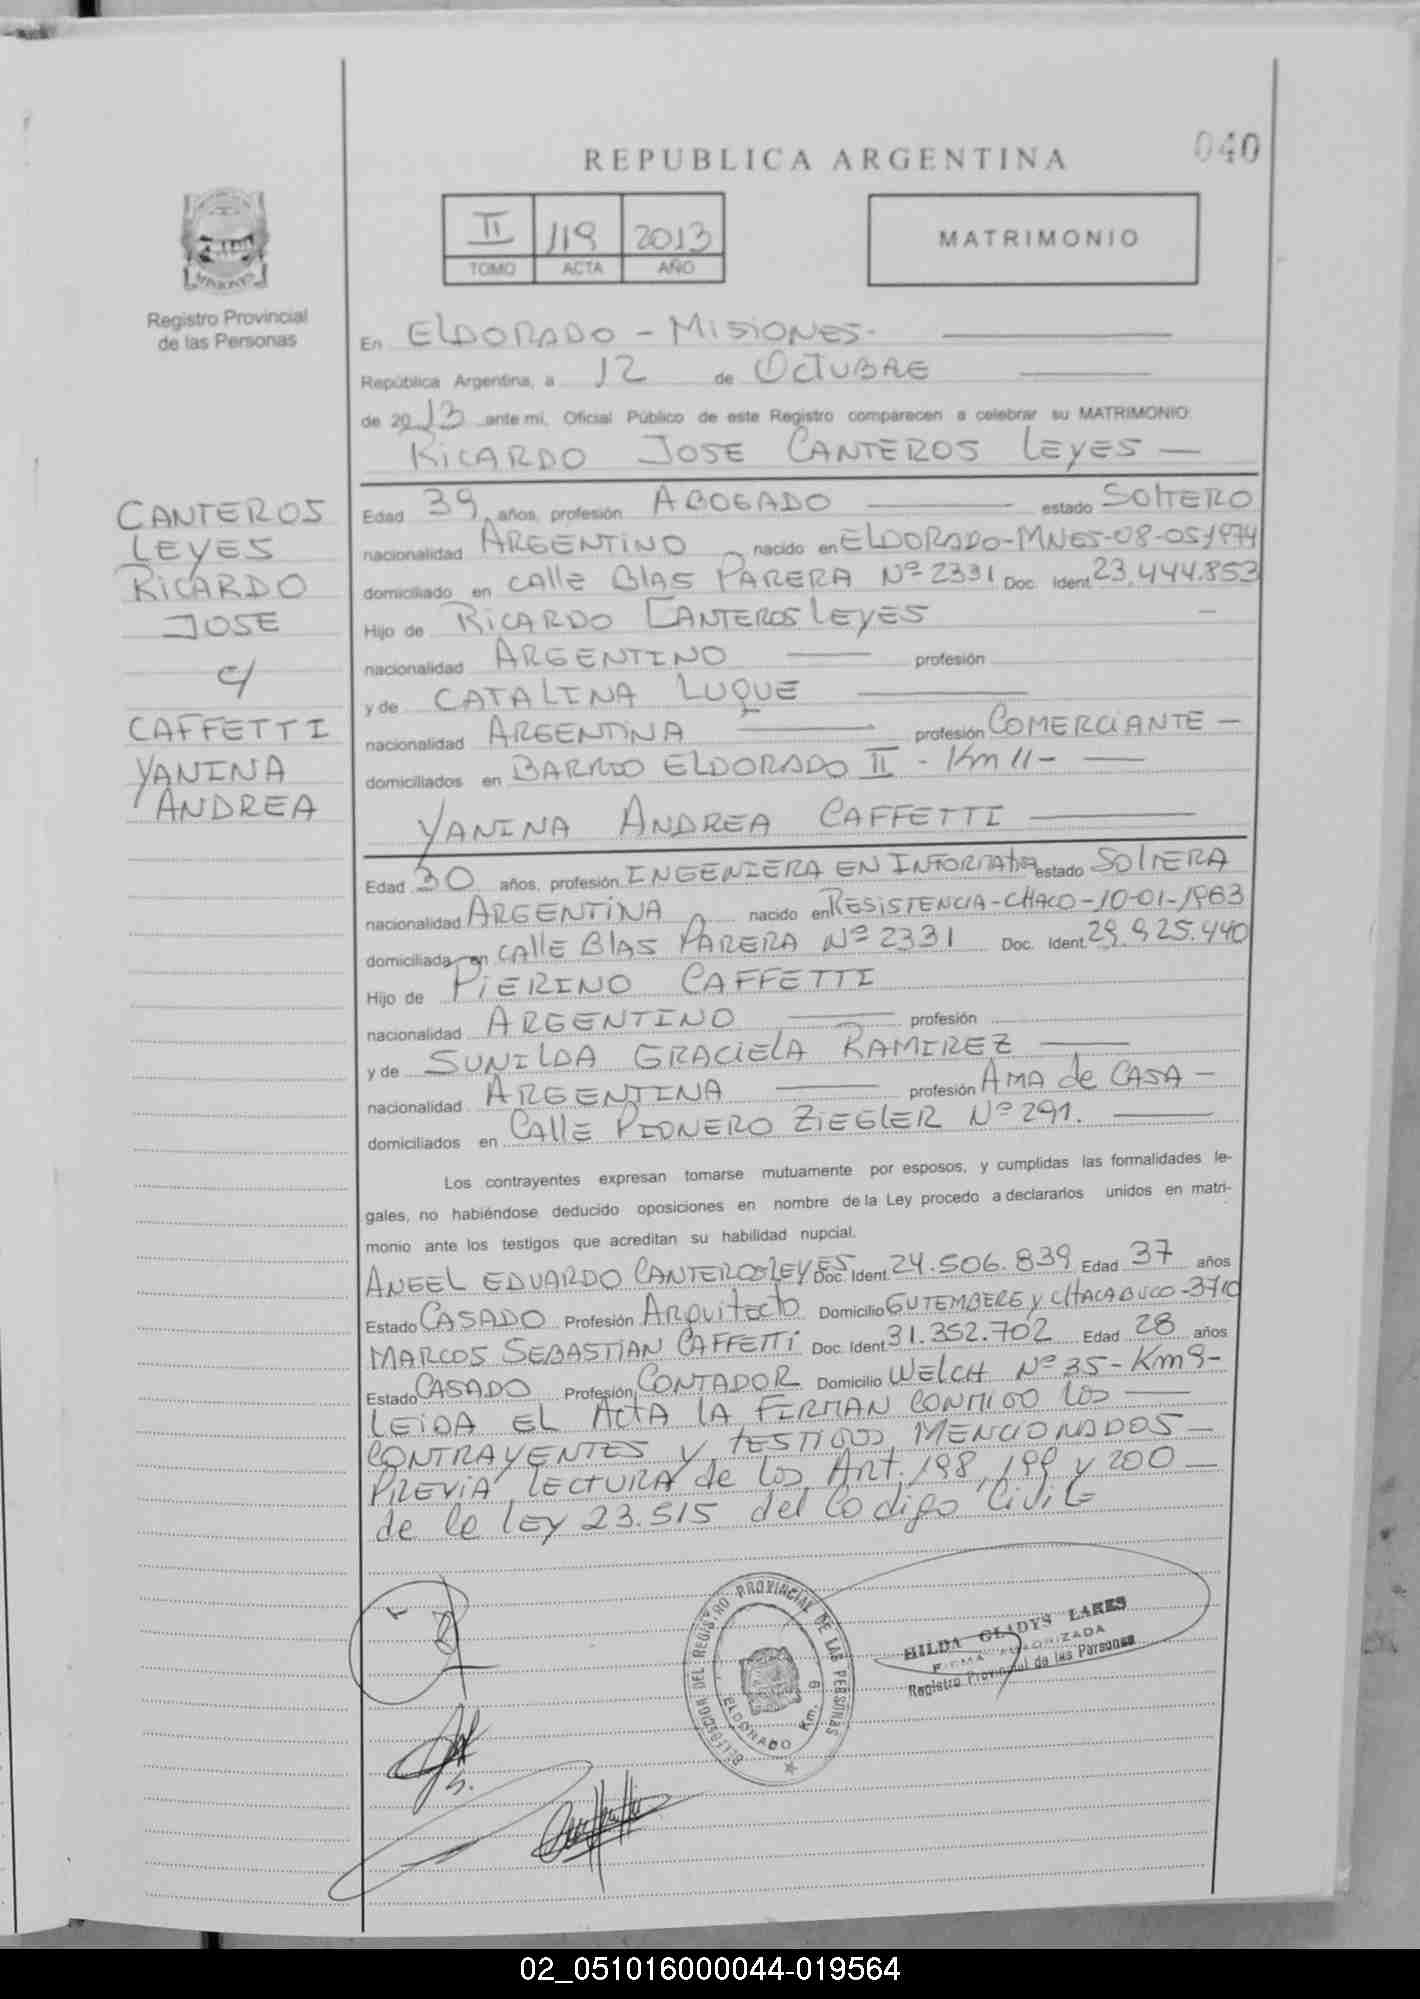 040
REPUBLICA ARGENTINA
II 119 2013
TOMO ACTA AÑO
MATRIMONIO
MISIONES
Registro Provincial
de las Personas
En ELDORADO - MISIONES-
República Argentina, a 12 de OCTUBRE
de 2013 ante mi, Oficial Público de este Registro comparecen a celebrar su MATRIMONIO:
RICARDO JOSE CANTEROS LEYES —
CANTEROS
LEYES
RICARDO
JOSE
c/
CAFFETTI
YANINA
ANDREA
Edad 39 años, profesión ABOGADO estado SOLTERO
nacionalidad ARGENTINO nacido en ELDORADO-MNES-08-05-1974
domiciliado en CALLE BLAS PARERA Nº 2331 Doc. Ident. 23.444.853
Hijo de RICARDO CANTEROS LEYES —
nacionalidad ARGENTINO — profesión
y de CATALINA LUQUE —
nacionalidad ARGENTINA — profesión COMERCIANTE —
domiciliados en BARRIO ELDORADO II - Km 11 - —
YANINA ANDREA CAFFETTI —
Edad 30 años, profesión INGENIERA EN INFORMATICA estado SOLTERA
nacionalidad ARGENTINA nacido en RESISTENCIA-CHACO-10-01-1983
domiciliada en CALLE BLAS PARERA Nº 2331 Doc. Ident. 29.925.440
Hijo de PIERINO CAFFETTI
nacionalidad ARGENTINO — profesión
y de SUNILDA GRACIELA RAMIREZ —
nacionalidad ARGENTINA — profesión AMA de CASA —
domiciliados en CALLE PIONERO ZIEGLER Nº 291. —
Los contrayentes expresan tomarse mutuamente por esposos, y cumplidas las formalidades le-
gales, no habiéndose deducido oposiciones en nombre de la Ley procedo a declararlos unidos en matri-
monio ante los testigos que acreditan su habilidad nupcial.
ANGEL EDUARDO CANTEROS LEYES Doc. Ident. 24.506.839 Edad 37 años
Estado CASADO Profesión ARQUITECTO Domicilio GUTEMBERG y CHACABUCO-3710
MARCOS SEBASTIAN CAFFETTI Doc. Ident. 31.352.702 Edad 28 años
Estado CASADO Profesión CONTADOR Domicilio WELCH Nº 35-Km9-
LEIDA EL ACTA LA FIRMAN CONMIGO LOS —
CONTRAYENTES Y TESTIGOS MENCIONADOS —
PREVIA LECTURA de los ART. 198, 199 y 200 —
de la ley 23.515 del Codigo Civil
DELEGACION DEL REGISTRO PROVINCIAL DE LAS PERSONAS
ELDORADO Km. 9
HILDA GLADYS LARES
FIRMA AUTORIZADA
Registro Provincial de las Personas
02_051016000044-019564